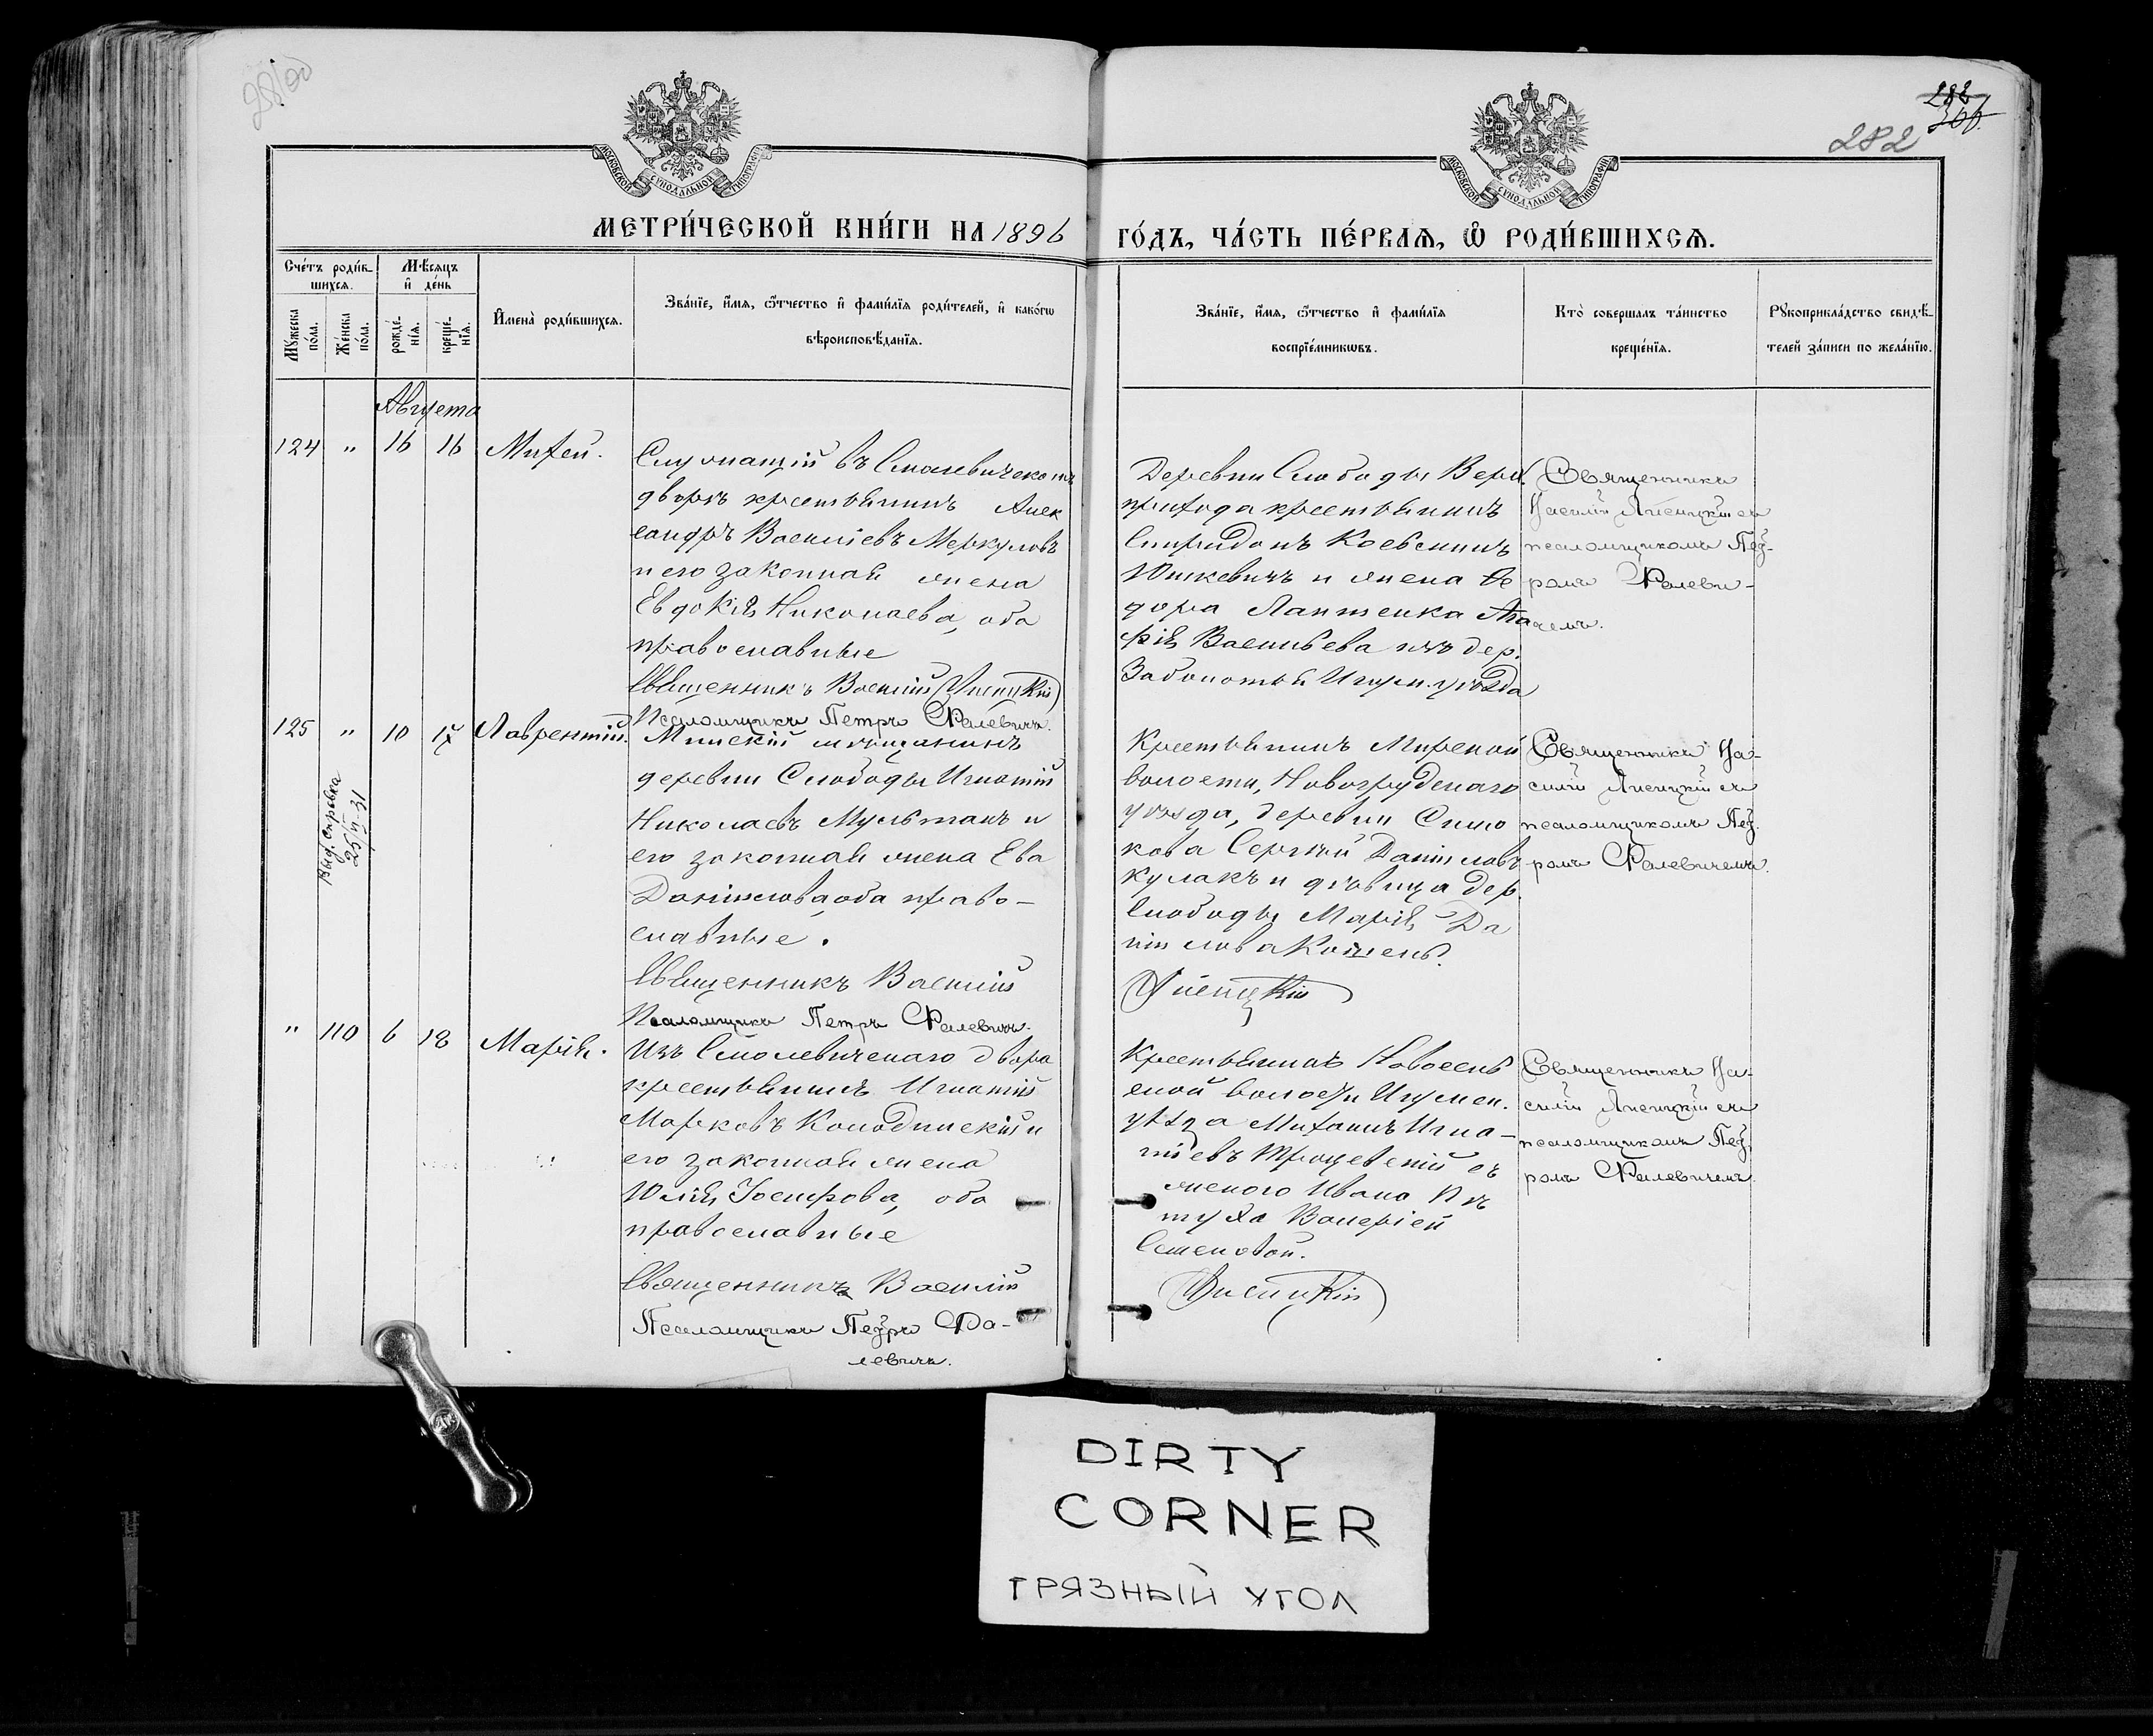 282
306
282
МОСКОВСКОЙ СУНОДАЛЬНОЙ ТИПОГРАФІИ
МОСКОВСКОЙ СУНОДАЛЬНОЙ ТИПОГРАФІИ
МЕТРИ́ЧЕСКОЙ КНИ́ГИ НА 1896
ГО́ДЪ, ЧА́СТЬ ПЕ́РВАЯ, Ѽ РОДИ́ВШИХСЯ.
Сче́тъ роди́в-
шихся.
Мѣ́сяцъ
и҆ де́нь
Му́жеска по́ла.
Же́нска по́ла.
рожде́-
нїя.
креще́-
нїя.
И҆мена̀ роди́вшихся.
Зва́нїе, и҆́мя, ѻ҆́тчество и҆ фами́лїя роди́телей, и҆ како́гѡ
вѣроисповѣ́данїя.
Зва́нїе, и҆́мя, ѻ҆́тчество и҆ фами́лїя
воспрїе́мникѡвъ.
Кто̀ соверша́лъ та́инство
креще́нїя.
Рꙋкоприкла́дство свидѣ́-
телей за́писи по жела́нїю.
Августа
124 " 16 16 Михей.
Служащій въ Смолевическомъ
дворѣ крестьянинъ Алек
сандръ Василіевъ Меркуловъ
и его законная жена
Евдокія Николаева, оба
православные
Священникъ Василій
Псаломщикъ Петръ Фалевичъ.
Деревни Слободы Верх.
прихода крестьянинъ
Спиридонъ
Юшкевичъ и жена Ѳе
дора Лаптенка Ага
фія Васильева изъ дер.
Заболотья Игум. уѣзда
Священникъ
псаломщикомъ Пет-
ромъ Фалеви-
чемъ.
125 " 10 17 Лаврентій.
Выд. справка
25/VI-31
Минскій мѣщанинъ
деревни Слободы Игнатій
Николаевъ Мультанъ и
его законная жена Ева
Даніилова, оба право-
славные.
Священникъ Василій
Псаломщикъ Петръ Фалевичъ.
Крестьянинъ Мирской
волости, Новогрудскаго
уѣзда, деревни Симо
кова Сергѣй Даніиловъ
Кулакъ и дѣвица дер.
Слободы Марія Да
ніилова
Священникъ Ва-
силій
псаломщикомъ Пет-
ромъ Фалевичемъ.
" 110 6 18 Марія.
Изъ Смолевичскаго двора
крестьянинъ Игнатій
Марковъ Колодинскій и
его законная жена
Юлія Іосифова, оба
православные
Священникъ Василій
Псаломщикъ Петръ Фа-
левичъ.
Крестьянинъ Новосель
ской волости Игумен.
уѣзда Михаилъ Игна-
тіевъ съ
женою Ивана Пѣ
туха Валеріей
Семеновой.
Священникъ Ва-
силій
псаломщикомъ Пет-
ромъ Фалевичемъ.
DIRTY
CORNER
ГРЯЗНЫЙ УГОЛ